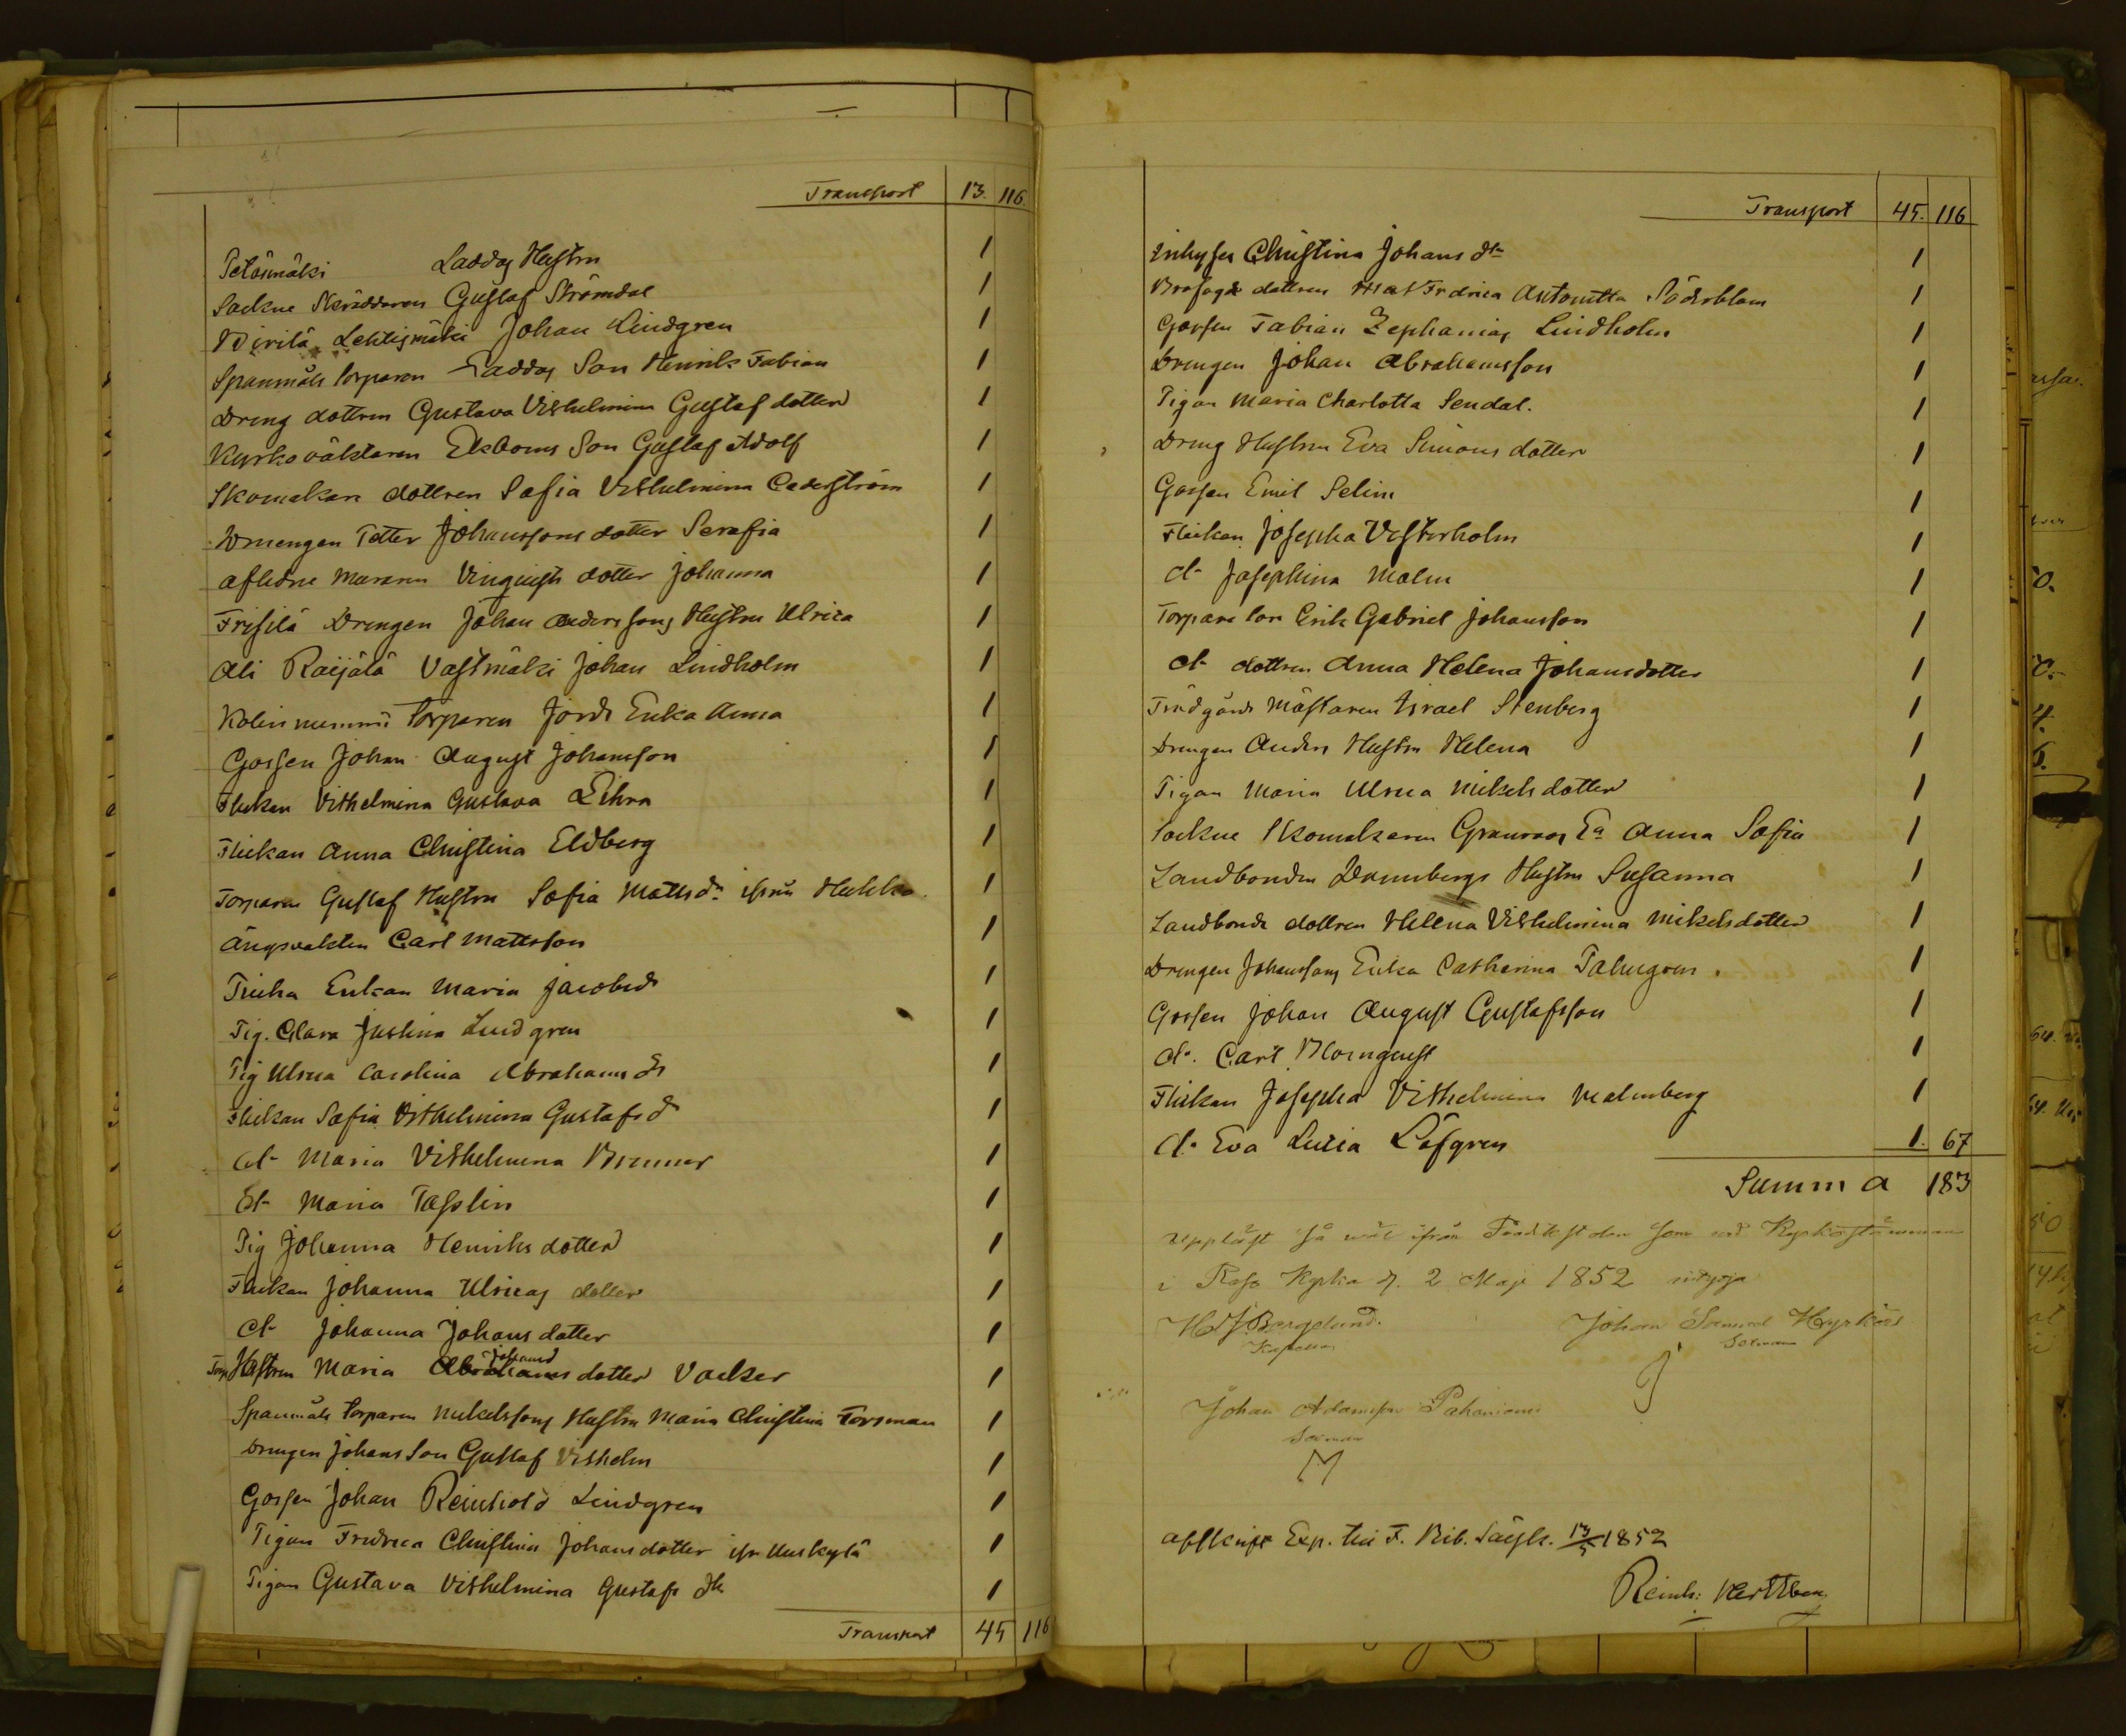 Transport 13. 116.
Petäsmäki Laddas Hustru 1
Sockne Skräddaren Gustaf Strömdal 1
Wirilä Lehtismäki Johan Lindgren 1
Spanmåls Torparen Laddas Son Henrik Fabian 1
Dreng dottren Gustava Vilhelmina Gustaf dotter 1
Kyrkoväktaren Ekboms Son Gustaf Adolf 1
Skomakare dottren Sofia Vilhelmina Cederström 1
Drengen Petter Johanssons dotter Serafia 1
Aflidne Muraren Vinquists dotter Johanna 1
Frisilä Drengen Johan Anderssons Hustru Ulrica 1
Ali Raijälä Vastmäki Johan Lindholm 1
Kolinummi Torparen Jords Erika Anna 1
Gossen Johan August Johansson 1
Flickan Vilhelmina Gustava Lihra 1
Flickan Anna Christina Eldberg 1
Torparen Gustaf Hustru Sofia Mattsdr ifrån Hukka 1
Ängsvakten Carl Mattsson 1
Enkan Maria Jacobsdr 1
Pig. Clara Justina Lindgren 1
Pig Ulrica Carolina Abrahamsdr 1
Flickan Sofia Vilhelmina Gustafsd 1
dt Maria Vilhelmina Brunner 1
dt Maria Tasslin 1
Pig Johanna Henriksdotter 1
Flickan Johanna Ulricas dotter 1
dt Johanna Johans dotter 1
Torp Hustrun Maria Abrahams Johans dotter Vacker 1
Spanmåls Torparen Mickelssons Hustru Maria Christina Forsman 1
Drengen Johans Son Gustaf Vilhelm 1
Gossen Johan Reinhold Lindgren 1
Pigan Fredrica Christina Johansdotter ifr Uuskylä 1
Pigan Gustava Vilhelmina Gustafs dtr 1
Transport 45 116
Transport 45. 116
Inhyses Christina Johans dtr 1
dottren Fredrica Antonetta Söderblom 1
Gossen Fabian Zephanias Lindholm 1
Drengen Johan Abrahamsson 1
Pigan Maria Charlotta Sendal. 1
Dreng Hustrun Eva Simons dotter 1
Gossen Emil Selim 1
Flickan Josepha Vesterholm 1
dt Josephina Malm 1
Torpare Son Erik Gabriel Johansson 1
dt dottren Anna Helena Johansdotter 1
Trädgårds Mästaren Israel Stenberg 1
Drengen Anders Hustru Helena 1
Pigan Maria Ulrica Mickelsdotter 1
Sockne Skomakaren Granroos Ea Anna Sofia 1
Landbonden Drumbergs Hustru Susanna 1
Landbonde dottren Helena Vilhelmina Mikelsdotter 1
Drengen Johanssons Erika Catharina Palmgren. 1
Gossen Johan August Gustafsson 1
dt. Carl Blomquist 1
Flickan Josepha Vilhelmina Malmberg 1
dt Eva Lucia Löfgren 1. 67
Summa 183
Uppläst så wäl ifrån Predikstolen som wid Kyrkostämman
i Kyrka d. 2 Maji 1852 intyga
H J Bergelund. Johan Samuel Hyrkäs
Kapellan Sexman
Johan Adamsson Pahaniemi
Sexman
M
Afskrift Exp. till F. Bib. Sällsk. 13/5 1852
Reinh: Hertzben.